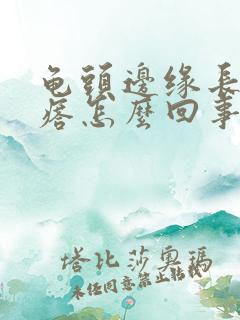 龟頭邊缘長
痞怎麽回事
塔比莎奧瑪
未任同意禁止转载